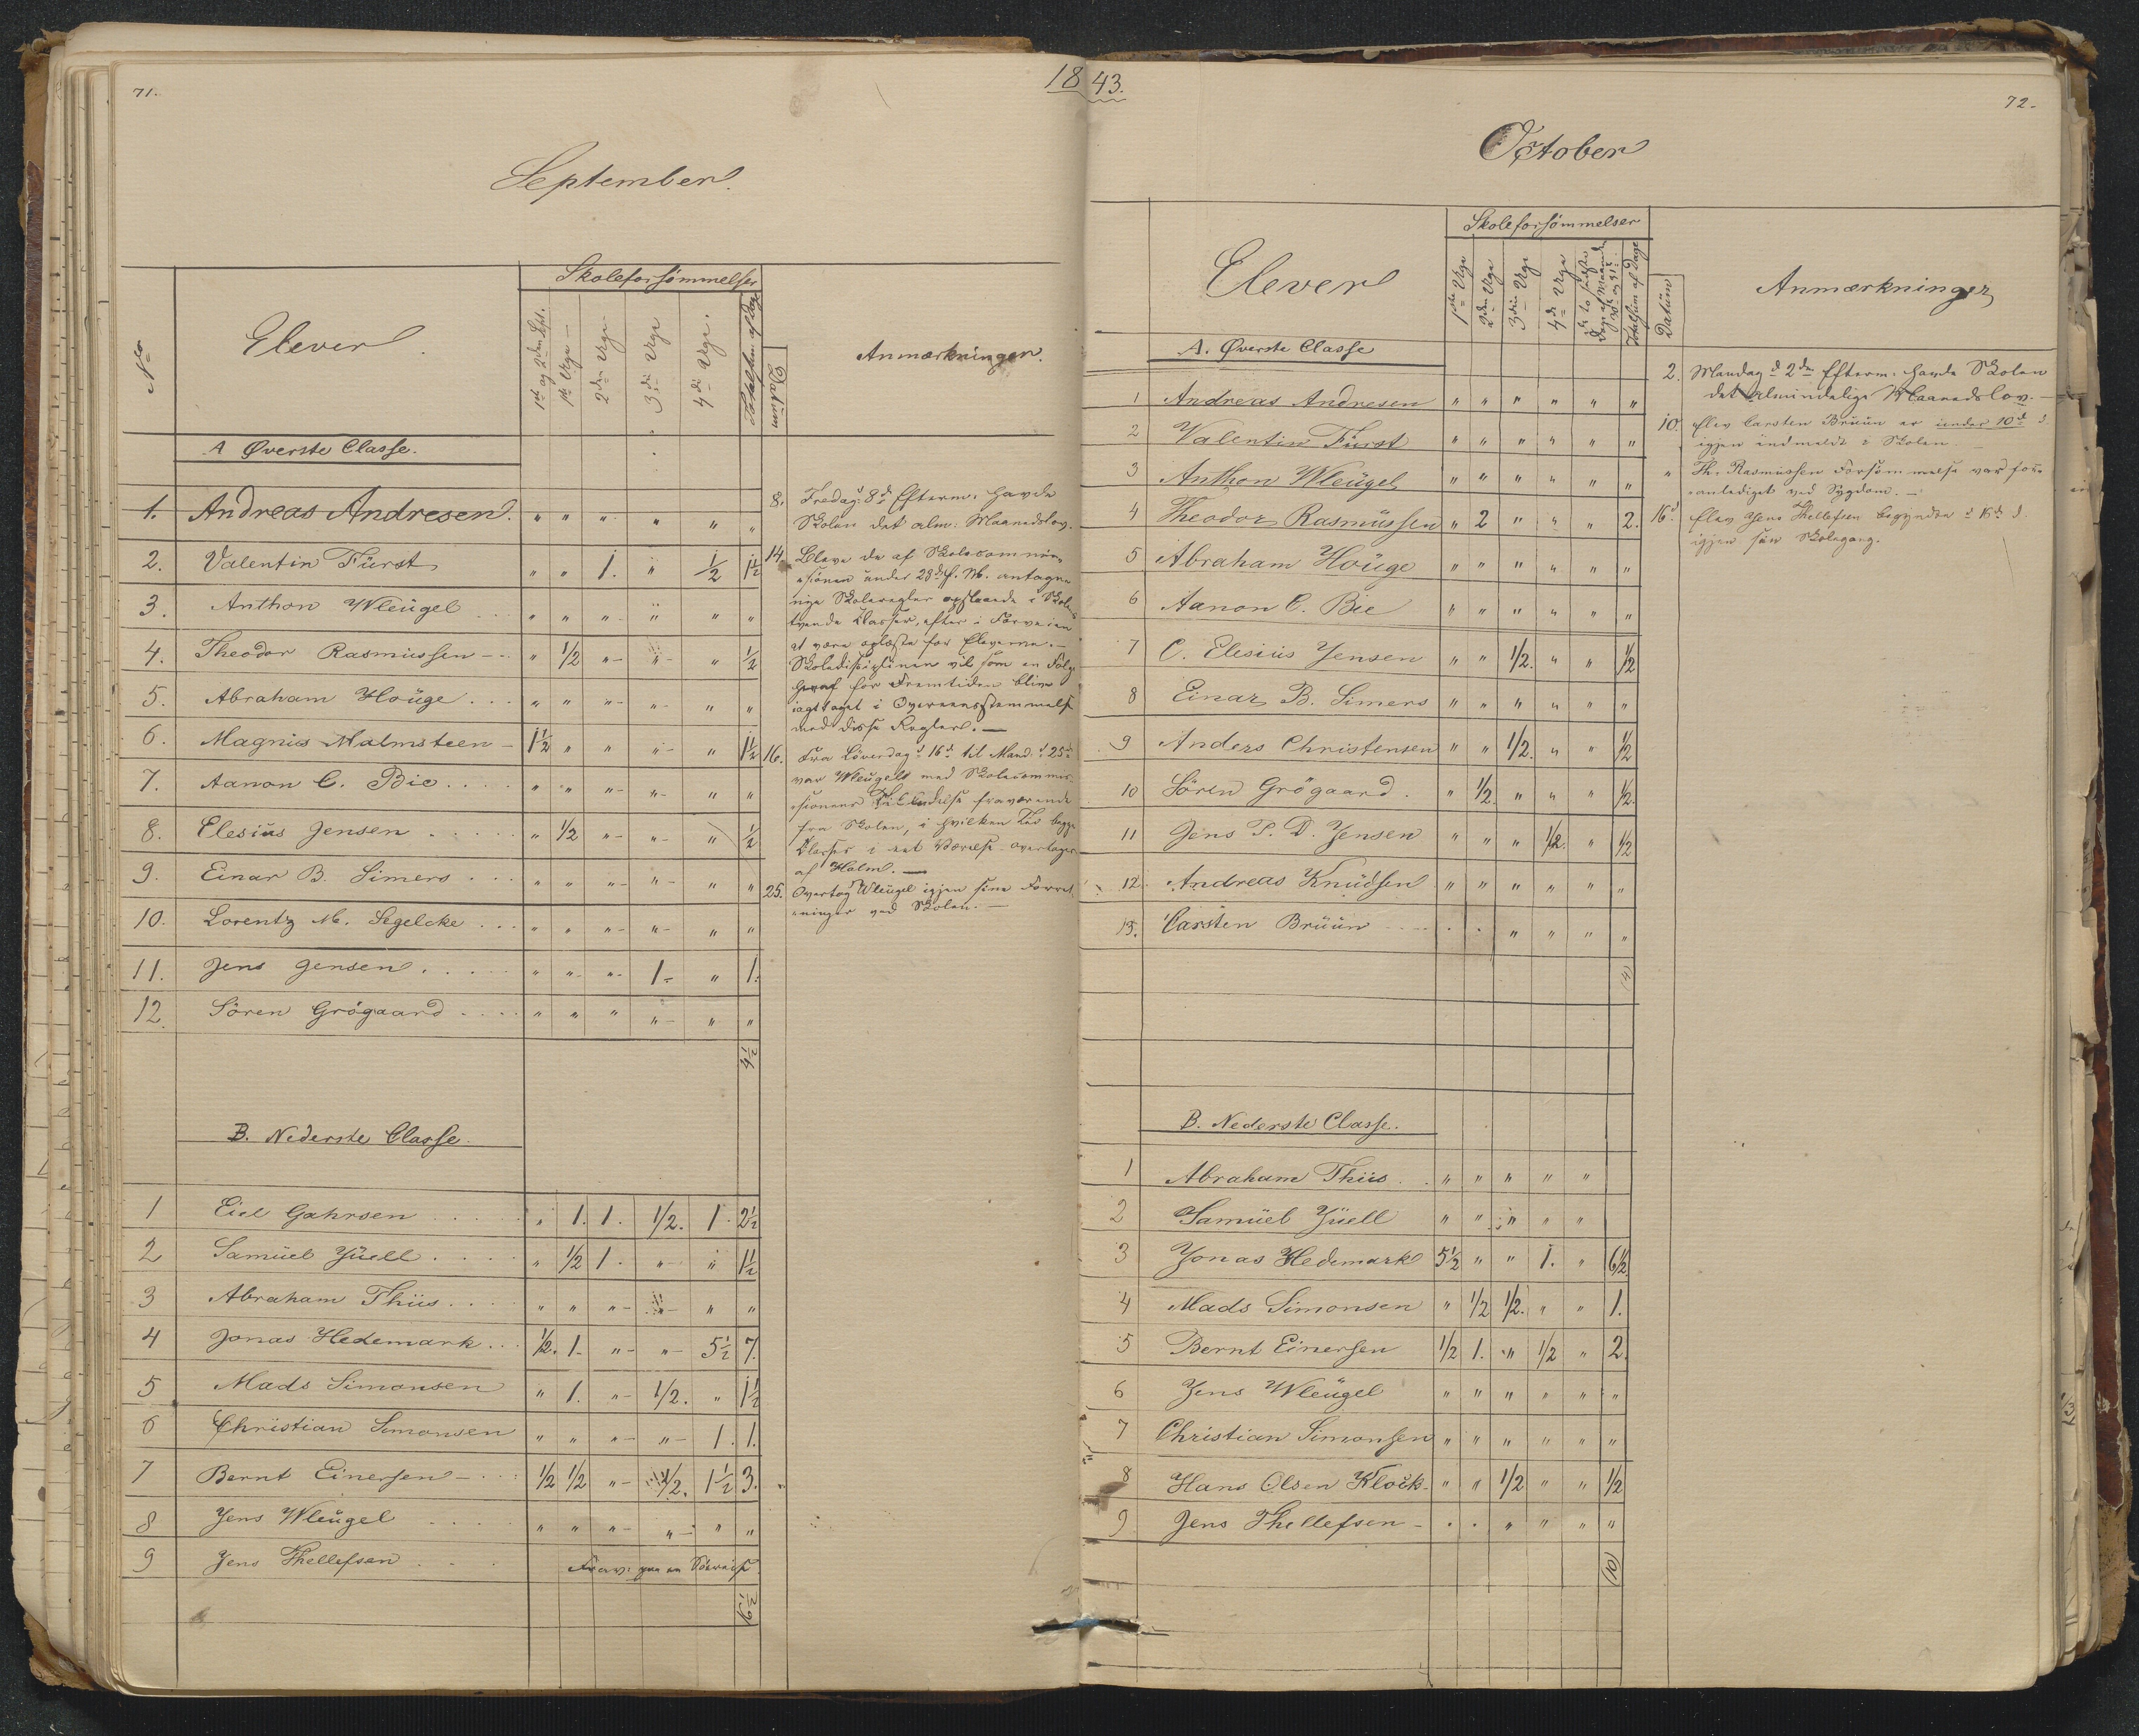 1843.
71.
September.
No
Elever.
Skoleforsömmelser
1ste og 2den Sept.
1ste Uge
2den Uge
3die Uge
4de Uge.
Totalsum af Dage
Datum
Anmærkninger.
A Øverste Classe.
1. Andreas Andresen. " " " " " "
2. Valentin Fürst " " 1. " 1/2 1 1/2
3. Anthon Wleügel " " " " " "
4. Theodor Rasmüssen " 1/2 " " " 1/2
5. Abraham Houge " " " " " "
6. Magnus Malmsteen 1 1/2 " " " " 1 1/2
7. Aanon C. Bie " " " " " "
8. Elesiüs Jensen " 1/2 " " " 1/2
9. Einar B. Simers " " " " " "
10. Lorentz M. Segelcke " " " " " "
11. Jens Jensen " " " 1 " 1.
12. Sören Grögaard " " " " " "
4 1/2
8. Fredag d. 8de Efterm: havde
Skolen det alm: Maanedslov.
14. Bleve de af Skolecommis-
sionen under 28de f. M. antagne
nye Skoleregler opslaaede i Skolens
tvende Classer, efter i Forveien
at være oplæste for Eleverne.
Skoledisciplinen vil som en Følge
heraf for Fremtiden blive
iagttaget i Overeensstemmelse
med disse Regler.
16. Fra Löverdag d 16de til Mand: d 25de
var Wleügel med Skolecommis-
sionens Tilladelse fraværende
fra Skolen, i hvilken Tid begge
Classer i eet Værelse overtoges
af Holm.
25. Overtog Wleügel igjen sine Forret-
ninger ved Skolen.
B. Nederste Classe.
1 Eiel Gahrsen " 1. 1. 1/2. 1 2 1/2
2 Samüel Jüell " 1/2 1. " " 1 1/2
3 Abraham Thiis " " " " " "
4 Jonas Hedemark 1/2. 1. " " 5 1/2 7.
5 Mads Simonsen " 1. " 1/2. " 1 1/2
6 Christian Simonsen " " " " 1. 1.
7 Bernt Einersen 1/2 1/2 " 1/2. 1 1/2 3.
8 Jens Wleügel " " " " " "
9 Jens Thellefsen Frav: paa en Söereise
16 1/2
72.
October
Elever
Skoleforsömmelser
1ste Uge
2den Uge
3die Uge
4de Uge
de to sidste
Dage af Maaned
30 og 31te
Totalsum af Dage
Datüm
Anmærkninger
A. Øverste Classe
1 Andreas Andresen " " " " " "
2 Valentin Fürst " " " " " "
3 Anthon Wleügel " " " " " "
4 Theodor Rasmüssen " 2 " " " 2.
5 Abraham Houge " " " " " "
6 Aanon C. Bie " " " " " "
7 C. Elesiüs Jensen " " 1/2. " " 1/2
8 Einar B. Simers " " " " " "
9 Anders Christensen " " 1/2. " " 1/2
10 Sören Grögaard. " 1/2. " " " 1/2.
11 Jens P. D. Jensen " " " 1/2. " 1/2
12. Andreas Knüdsen " " " " " "
13. Carsten Brüün " " " "
(4)
2. Mandag d 2den Efterm. havde Skolen
det almindelige Maanedslov.
10. Elev Carsten Brüün er under 10de d
igjen indmeldt i Skolen
" Th. Rasmüssen Forsömmelse var for-
anlediget ved Sygdom.
16d. Elev Jens Thellefsen begyndte d 16de d.
igjen sin Skolegang.
B. Nederste Classe.
1 Abraham Thiis " " " " "
2 Samüel Jüell " " " " "
3 Jonas Hedemark 5 1/2 " " 1. " 6 1/2
4 Mads Simonsen " 1/2 1/2. " " 1.
5 Bernt Einersen 1/2 1. " 1/2 " 2.
6 Jens Wleügel " " " " " "
7 Christian Simonsen " " " " " "
8 Hans Olsen Klock " " 1/2 " " 1/2
9 Jens Thellefsen " " " "
(10)